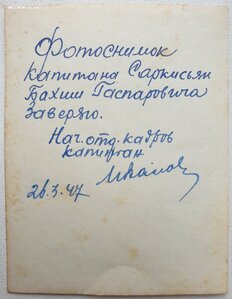 Фотоснимок
капитана Саркисьян
Бахши Гаспаровича
Заверяю.
Нач. отд. кадров
капитан
26.3.47